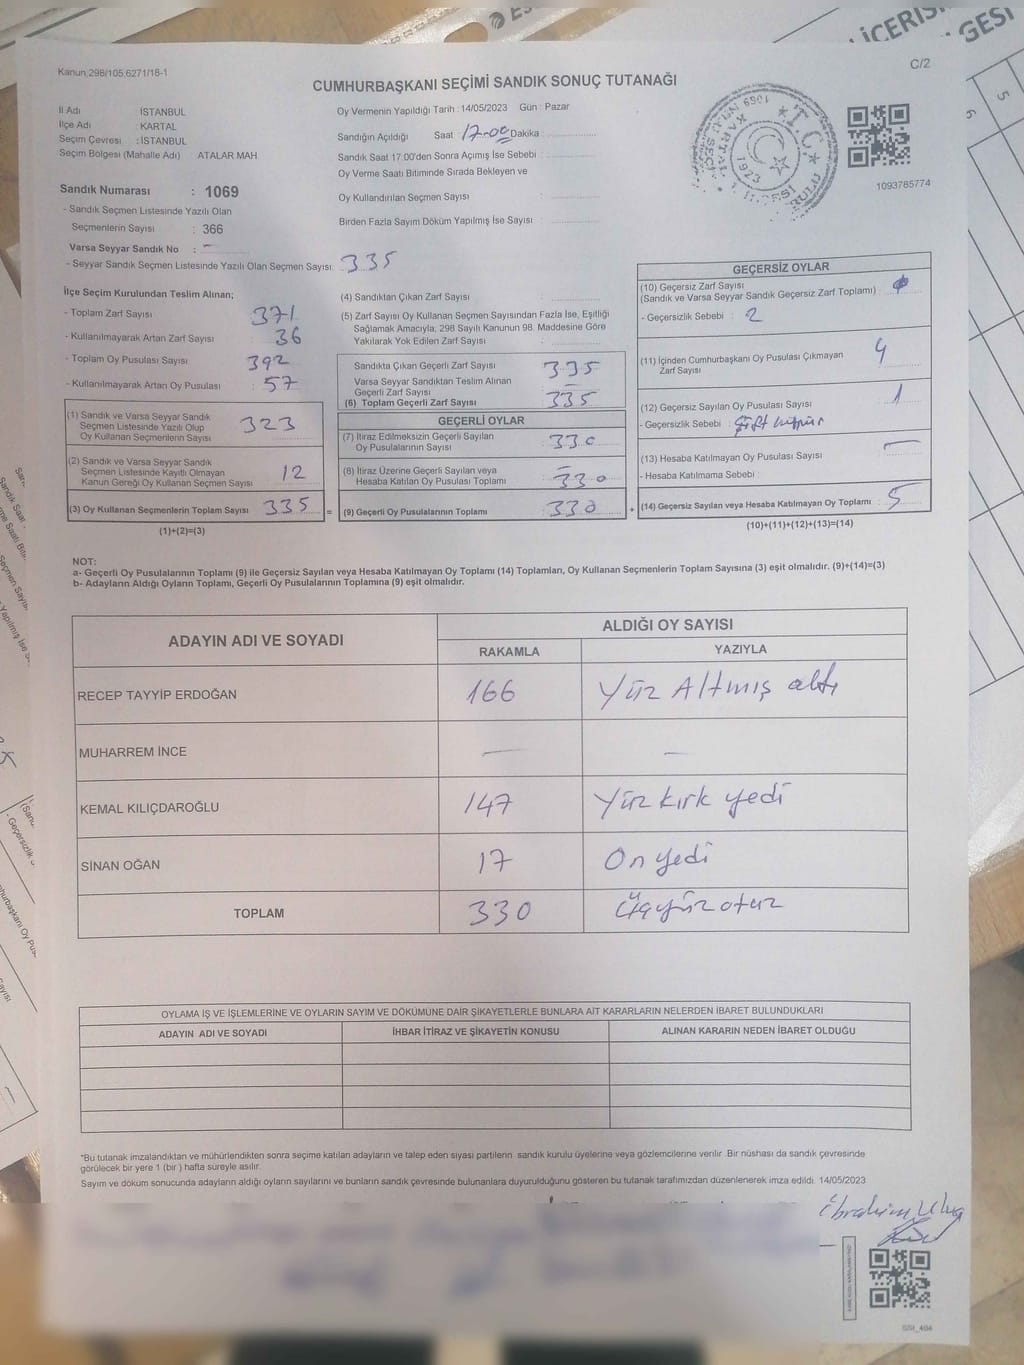 İÇERİSİ
GESİ
Kanun 298/105.6271/18-1
C/2
CUMHURBAŞKANI SEÇİMİ SANDIK SONUÇ TUTANAĞI
İl Adı : İSTANBUL
İlçe Adı : KARTAL
Seçim Çevresi : İSTANBUL
Seçim Bölgesi (Mahalle Adı) ATALAR MAH
Sandık Numarası : 1069
- Sandık Seçmen Listesinde Yazılı Olan
Seçmenlerin Sayısı : 366
Varsa Seyyar Sandık No : -
- Seyyar Sandık Seçmen Listesinde Yazılı Olan Seçmen Sayısı: 335
Oy Vermenin Yapıldığı Tarih : 14/05/2023 Gün : Pazar
Sandığın Açıldığı Saat : 17-00 Dakika :
Sandık Saat 17.00'den Sonra Açımış İse Sebebi :
Oy Verme Saati Bitiminde Sırada Bekleyen ve
Oy Kullandırılan Seçmen Sayısı :
Birden Fazla Sayım Döküm Yapılmış İse Sayısı :
T.C.
KARTAL
1923
1069
1093785774
İlçe Seçim Kurulundan Teslim Alınan;
- Toplam Zarf Sayısı : 371
- Kullanılmayarak Artan Zarf Sayısı : 36
- Toplam Oy Pusulası Sayısı : 392
- Kullanılmayarak Artan Oy Pusulası : 57
(1) Sandık ve Varsa Seyyar Sandık
Seçmen Listesinde Yazılı Olup
Oy Kullanan Seçmenlerin Sayısı : 323
(2) Sandık ve Varsa Seyyar Sandık
Seçmen Listesinde Kayıtlı Olmayan
Kanun Gereği Oy Kullanan Seçmen Sayısı : 12
(3) Oy Kullanan Seçmenlerin Toplam Sayısı : 335
(1)+(2)=(3)
=
(4) Sandıktan Çıkan Zarf Sayısı :
(5) Zarf Sayısı Oy Kullanan Seçmen Sayısından Fazla İse, Eşitliği
Sağlamak Amacıyla, 298 Sayılı Kanunun 98. Maddesine Göre
Yakılarak Yok Edilen Zarf Sayısı :
Sandıkta Çıkan Geçerli Zarf Sayısı : 335
Varsa Seyyar Sandıktan Teslim Alınan
Geçerli Zarf Sayısı : -
(6) Toplam Geçerli Zarf Sayısı : 335
GEÇERLİ OYLAR
(7) İtiraz Edilmeksizin Geçerli Sayılan
Oy Pusulalarının Sayısı : 330
(8) İtiraz Üzerine Geçerli Sayılan veya
Hesaba Katılan Oy Pusulası Toplamı : 330
(9) Geçerli Oy Pusulalarının Toplamı : 330
+
GEÇERSİZ OYLAR
(10) Geçersiz Zarf Sayısı
(Sandık ve Varsa Seyyar Sandık Geçersiz Zarf Toplamı) :
- Geçersizlik Sebebi : 2
(11) İçinden Cumhurbaşkanı Oy Pusulası Çıkmayan
Zarf Sayısı : 4
(12) Geçersiz Sayılan Oy Pusulası Sayısı : 1
- Geçersizlik Sebebi : Çift
(13) Hesaba Katılmayan Oy Pusulası Sayısı : -
- Hesaba Katılmama Sebebi :
(14) Geçersiz Sayılan veya Hesaba Katılmayan Oy Toplamı : 5
(10)+(11)+(12)+(13)=(14)
NOT:
a- Geçerli Oy Pusulalarının Toplamı (9) ile Geçersiz Sayılan veya Hesaba Katılmayan Oy Toplamı (14) Toplamları, Oy Kullanan Seçmenlerin Toplam Sayısına (3) eşit olmalıdır. (9)+(14)=(3)
b- Adayların Aldığı Oyların Toplamı, Geçerli Oy Pusulalarının Toplamına (9) eşit olmalıdır.
ADAYIN ADI VE SOYADI
ALDIĞI OY SAYISI
RAKAMLA YAZIYLA
RECEP TAYYİP ERDOĞAN 166 Yüz Altmış altı
MUHARREM İNCE — —
KEMAL KILIÇDAROĞLU 147 Yüz kırk yedi
SİNAN OĞAN 17 On yedi
TOPLAM 330 Üçyüz otuz
OYLAMA İŞ VE İŞLEMLERİNE VE OYLARIN SAYIM VE DÖKÜMÜNE DAİR ŞİKAYETLERLE BUNLARA AİT KARARLARIN NELERDEN İBARET BULUNDUKLARI
ADAYIN ADI VE SOYADI İHBAR İTİRAZ VE ŞİKAYETİN KONUSU ALINAN KARARIN NEDEN İBARET OLDUĞU
*Bu tutanak imzalandıktan ve mühürlendikten sonra seçime katılan adayların ve talep eden siyasi partilerin sandık kurulu üyelerine veya gözlemcilerine verilir .Bir nüshası da sandık çevresinde
görülecek bir yere 1 (bir ) hafta süreyle asılır.
Sayım ve döküm sonucunda adayların aldığı oyların sayılarını ve bunların sandık çevresinde bulunanlara duyurulduğunu gösteren bu tutanak tarafımızdan düzenlenerek imza edildi. 14/05/2023
İbrahim